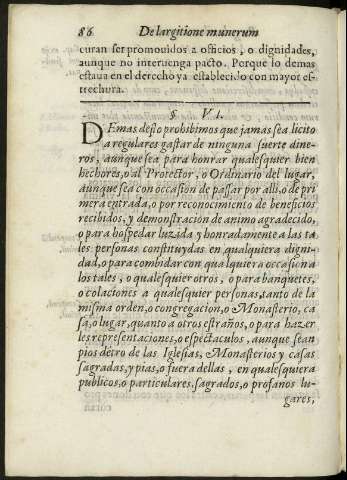 86 De largitione munerum
curan ser promouidos a officios, o dignidades,
aunque no interuenga pacto. Porque lo demas
estaua en el derecho ya establecido con mayor es-
trechura.
§ V I.
DEmas desto prohibimos que jamas sea licito
a regulares gastar de ninguna suerte dine-
ros, aunque sea para honrar qualesquier bien
hechores, o al Protector, o Ordinario del lugar,
aunque sea con occasion de passar por alli, o de pri
mera entrada, o por reconocimiento de beneficios
recibidos, y demonstracion de animo agradecido,
o para hospedar luzida y honradamente a las ta
les personas constituydas en qualquiera digni-
dad, o para combidar con qualquiera occasion a
los tales, o qualesquier otros, o para banquetes,
o colaciones a qualesquier personas, tanto de la
misma orden, o congregacion, o Monasterio, ca
sa, o lugar, quanto a otros estraños, o para hazer
les representaciones, o espectaculos, aunque sean
pios detro de las Iglesias, Monasterios y casas
sagradas, y pias, o fuera dellas, en qualesquiera
publicos, o particulares, sagrados, o profanos lu-
gares,